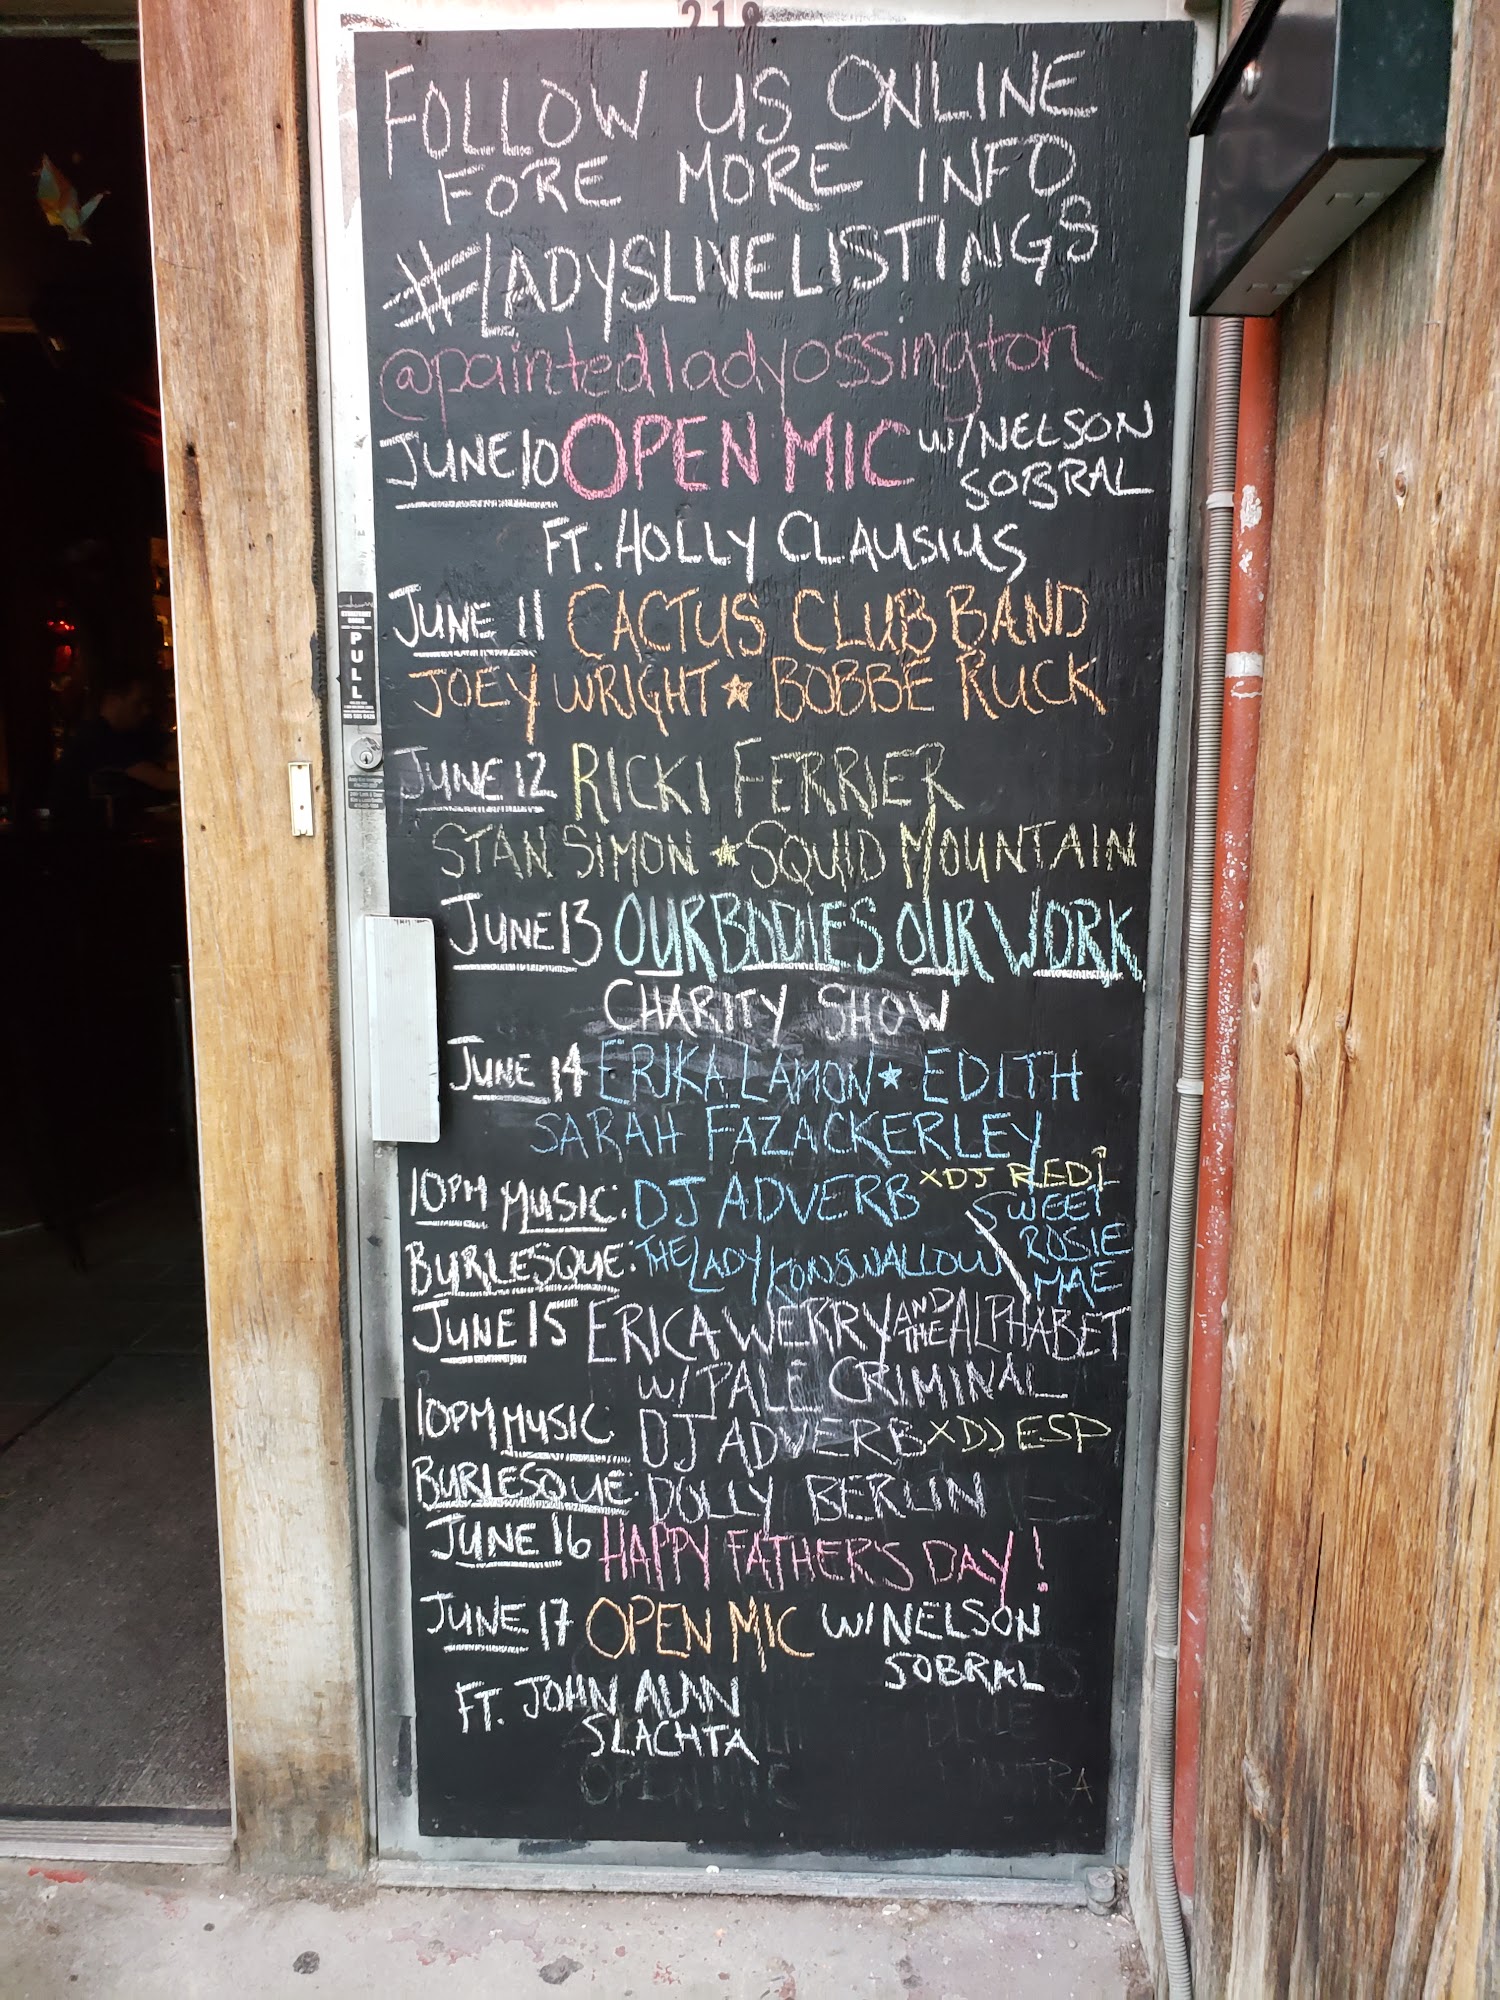 218
FOLLOW US ONLINE
FORE MORE INFO
#LADYSLIVELISTINGS
@paintedladyossington
JUNE 10 OPEN MIC W/NELSON
SOBRAL
FT. HOLLY CLAUSIUS
JUNE 11 CACTUS CLUB BAND
JOEY WRIGHT ★ BOBBE RUCK
PULL
JUNE 12 RICKI FERRIER
STAN SIMON ★ SQUID MOUNTAIN
JUNE 13 OUR BODIES OUR WORK
CHARITY SHOW
JUNE 14 ERIKA LAMON ★ EDITH
SARAH FAZACKERLEY
10PM MUSIC: DJ ADVERB X DJ REDI
BURLESQUE: THE LADY KONSWALLOW \ SWEET
ROSIE
MAE
JUNE 15 ERICA WERRY AND THE ALPHABET
W/ PALE CRIMINAL
10PM MUSIC DJ ADVERB X DJ ESP
BURLESQUE: DOLLY BERLIN
JUNE 16 HAPPY FATHER'S DAY!
JUNE 17 OPEN MIC W/NELSON
SOBRAL
FT. JOHN ALAN
SLACHTA
BLUE
OPEN MIC